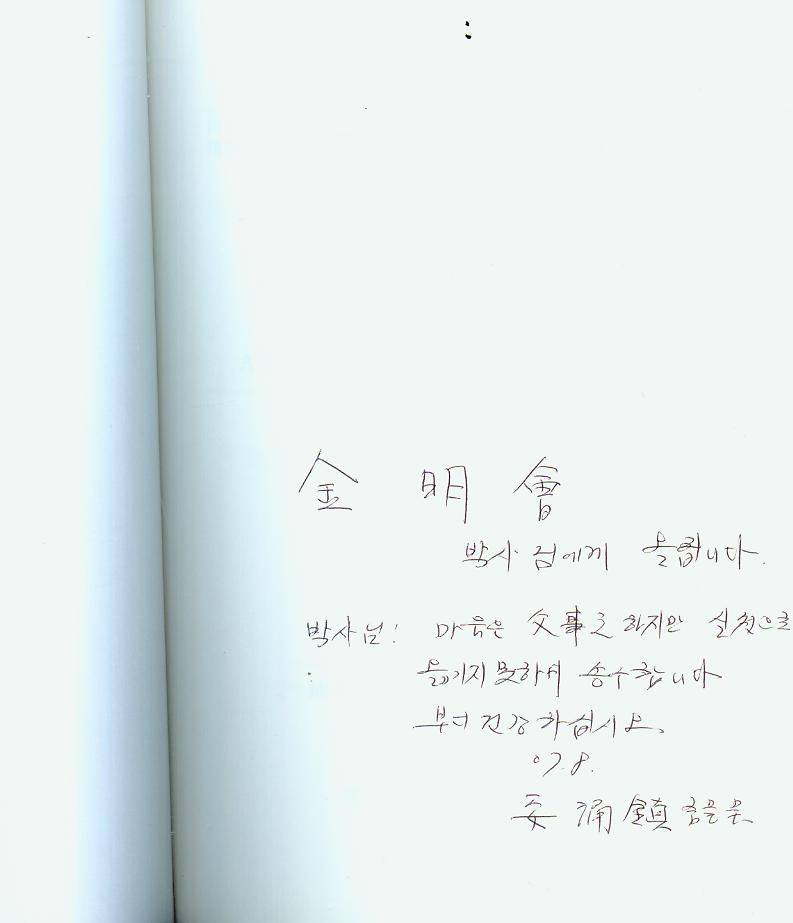 金 明 會
박사 님에게 올립니다.
박사님! 마음은 父事之 하지만 실천으로
옮기지 못하여 송수합니다
부디 건강하십시요.
07. 8.
鎭